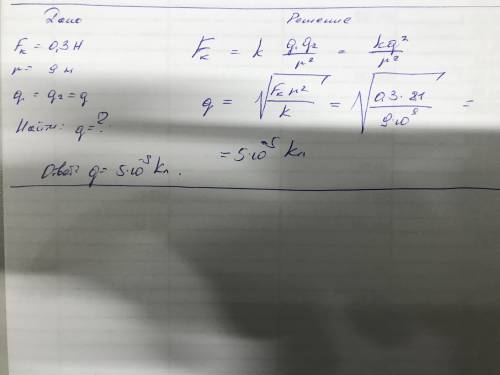 Дано
Fₖ = 0,3 Н
r = 9 м
q₁ = q₂ = q
Найти: q = ?
Решение
Fₖ = k q₁q₂/r² = kq²/r²
q = √(Fₖ r²/k) = √(0,3 · 81/9·10⁹) =
= 5·10⁻⁵ Кл
Ответ: q = 5·10⁻⁵ Кл.